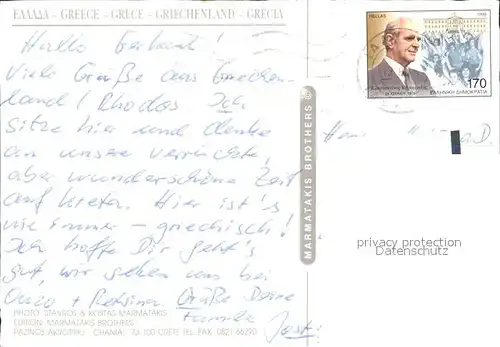 ΕΛΛΑΔΑ – GREECE – GRECE – GRIECHENLAND – GRECIA
Hallo Gerhard!
Viele Grüße aus Griechen-
land / Rhodos Ich
sitze hier und denke
an unsere verrückte,
aber wunderschöne Zeit
auf Kreta. Hier ist's
wie immer – griechisch!
Ich hoffe Dir geht's
gut, wir sehen uns bei
Ouzo + Retsina. Grüße Deine
Familie
PHOTO: STAVROS & KOSTAS MARMATAKIS
EDITION: MARMATAKIS BROTHERS
PAZINOS AKROTIRI - CHANIA 73 100 CRETE TEL. FAX. 0821 66290
MARMATAKIS BROTHERS
HELLAS
170
ΕΛΛΗΝΙΚΗ ΔΗΜΟΚΡΑΤΙΑ
privacy protection
Datenschutz